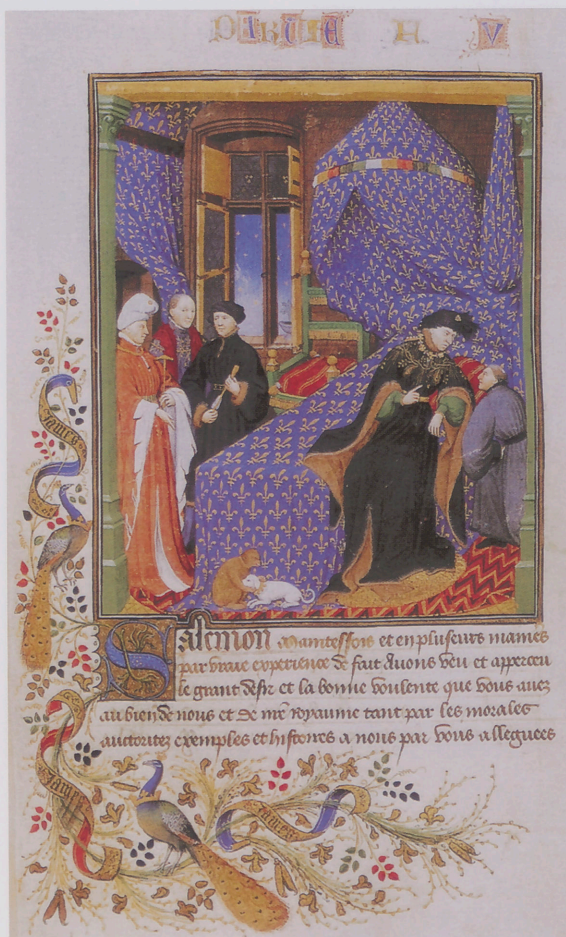 Salemon Maintesfois et en pluseurs manieres
par vraie experience de fait Auons veu et apperceu
le grant desir et la bonne voulente que vous auez
au bien de nous et de nre Royaume tant par les morales
auctoritez exemples et histoires a nous par vous alleguees
James
James
James